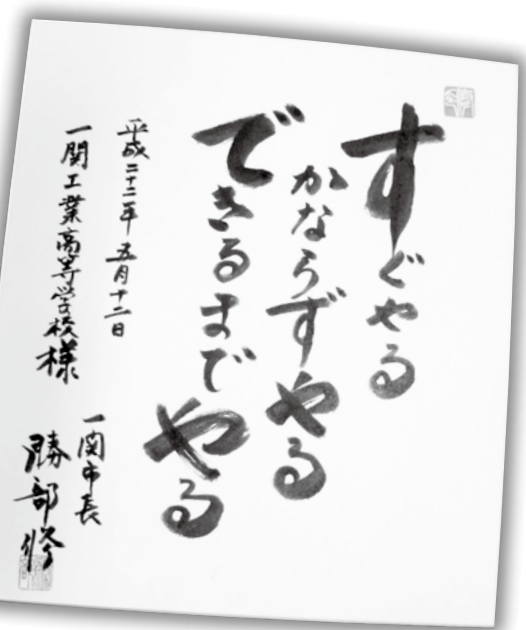 すぐやる
かならずやる
できるまでやる
平成二十二年五月十二日
一関工業高等学校様
一関市長
勝部修